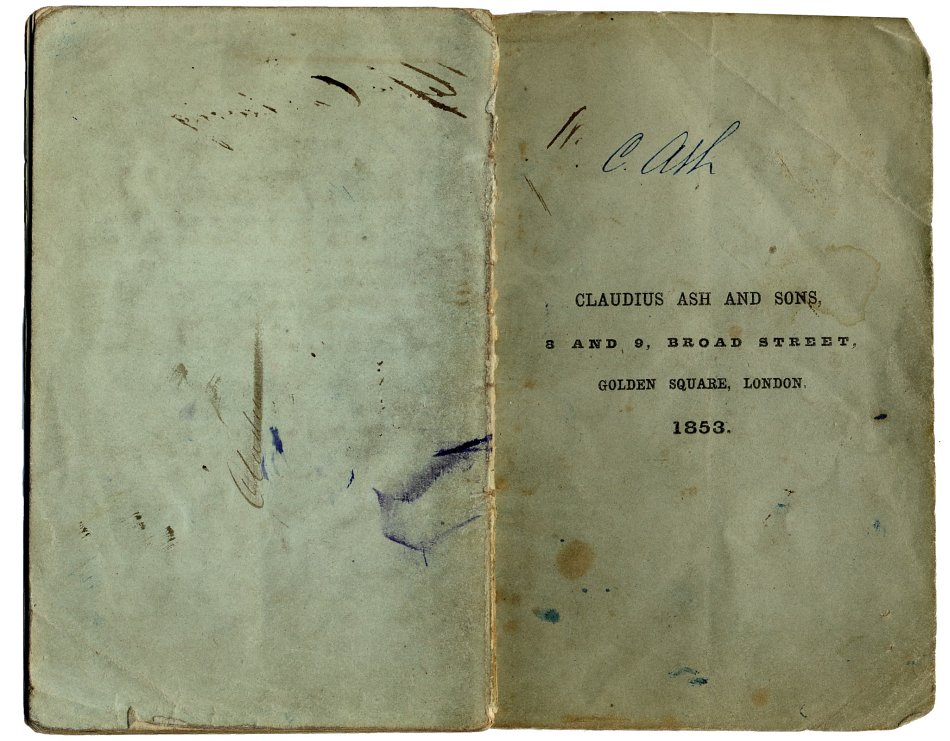 C. Ash
CLAUDIUS ASH AND SONS,
8 AND 9, BROAD STREET,
GOLDEN SQUARE, LONDON.
1853.